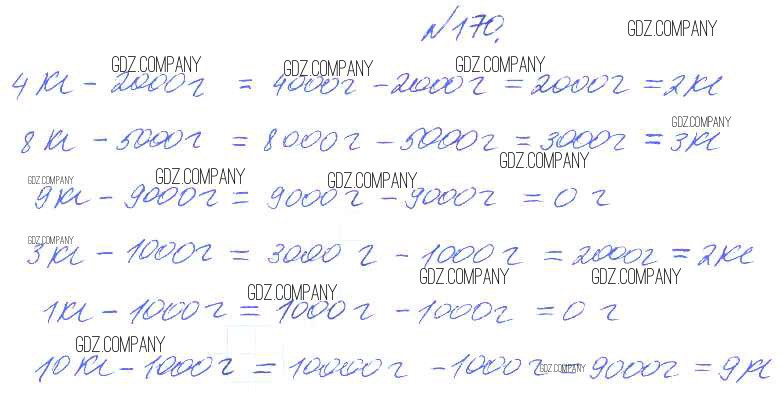 №170.
GDZ.COMPANY
GDZ.COMPANY GDZ.COMPANY GDZ.COMPANY
4 кг - 2000 г = 4000 г - 2000 г = 2000 г = 2 кг
GDZ.COMPANY
8 кг - 5000 г = 8000 г - 5000 г = 3000 г = 3 кг
GDZ.COMPANY
GDZ.COMPANY GDZ.COMPANY GDZ.COMPANY
9 кг - 9000 г = 9000 г - 9000 г = 0 г
GDZ.COMPANY
3 кг - 1000 г = 3000 г - 1000 г = 2000 г = 2 кг
GDZ.COMPANY GDZ.COMPANY
GDZ.COMPANY
1 кг - 1000 г = 1000 г - 1000 г = 0 г
GDZ.COMPANY
10 кг - 1000 г = 10000 г - 1000 г = 9000 г = 9 кг
GDZ.COMPANY